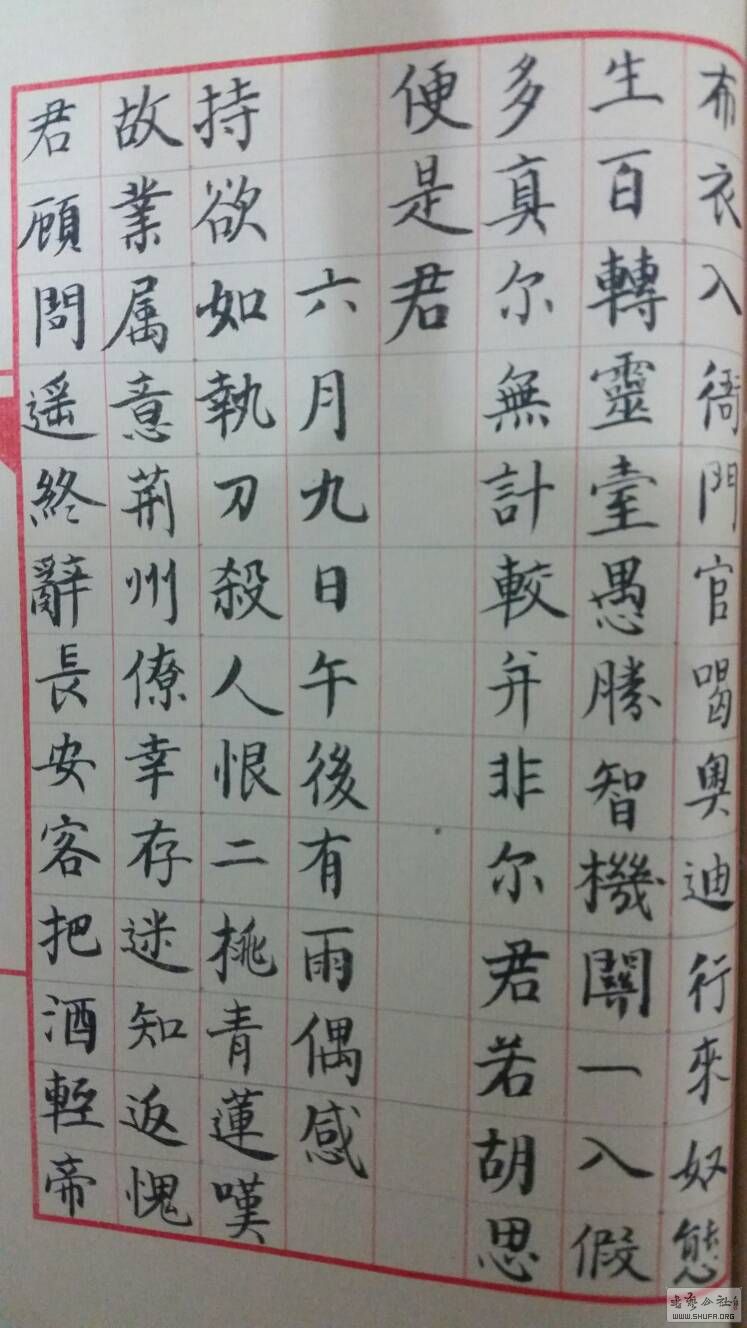 布衣入衙門官喝奧迪行來奴態
生百轉靈臺愚勝智機關一入假
多真尔無計較并非尔君若胡思
便是君
六月九日午後有雨偶感
持欲如執刀殺人恨二桃青蓮嘆
故業属意荊州僚幸存迷知返愧
君顧問遥終辭長安客把酒輕帝
WWW.SHUFA.ORG